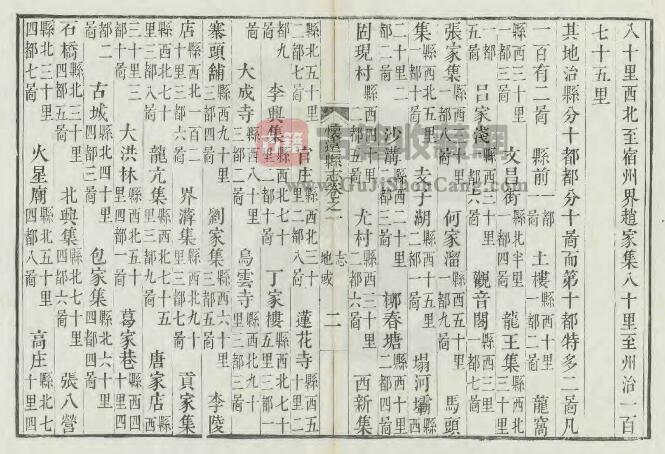 八十里西北至宿州界趙家集八十里至州治一百
七十五里
其地治縣分十都都分十啚而第十都特多二啚凡
一百有二啚 縣前一都一啚 土樓一都二啚 龍窩
縣西三十里一都三啚 文昌街縣北半里一都 龍王集縣西北
五啚 呂家窪縣西三十里一都六啚 觀音閣一都七啚
張家集縣西十八里一都八啚 何家溜縣西五十里一都九啚 馬頭
集縣西北十里 夫子湖縣西五十里二都一啚 塌河壩縣西
二十里二都二啚 沙溝二都三啚 柳春塘縣西二十里二都四啚
固現村縣西四十里二都五啚 尤村縣西三十里二都六啚 西新集
懷遠縣志卷之一 地域志 二
縣北五十里二都七啚 官庄縣西二十里二都八啚 蓮花寺縣西五十里二
都九啚 李興集縣西北七十里二都十啚 丁家樓縣西五十里三都一啚
大成寺縣西北八十里三都二啚 烏雲寺縣西北九十里三都三啚
寨頭鋪縣西北九十里三都四啚 劉家集縣西六十里三都五啚 李陵
店縣西北一百二十里三都六啚 界溝集縣西北九十里三都七啚 貢家集
縣西北七十里三都八啚 龍亢集縣西北七十五里三都九啚 唐家店縣西
三十里三都十啚 大洪林縣西北五十里四都一啚 葛家巷縣西北十里四
都二啚 古城四都三啚 包家集縣北六十里四都四啚
石橋縣北三十里四都五啚 北興集縣北七十里四都六啚 張八營
縣北三十里四都七啚 火星廟縣北五十里四都八啚 高庄縣北七十里四
古籍收藏網
www.GuJiShouCang.com